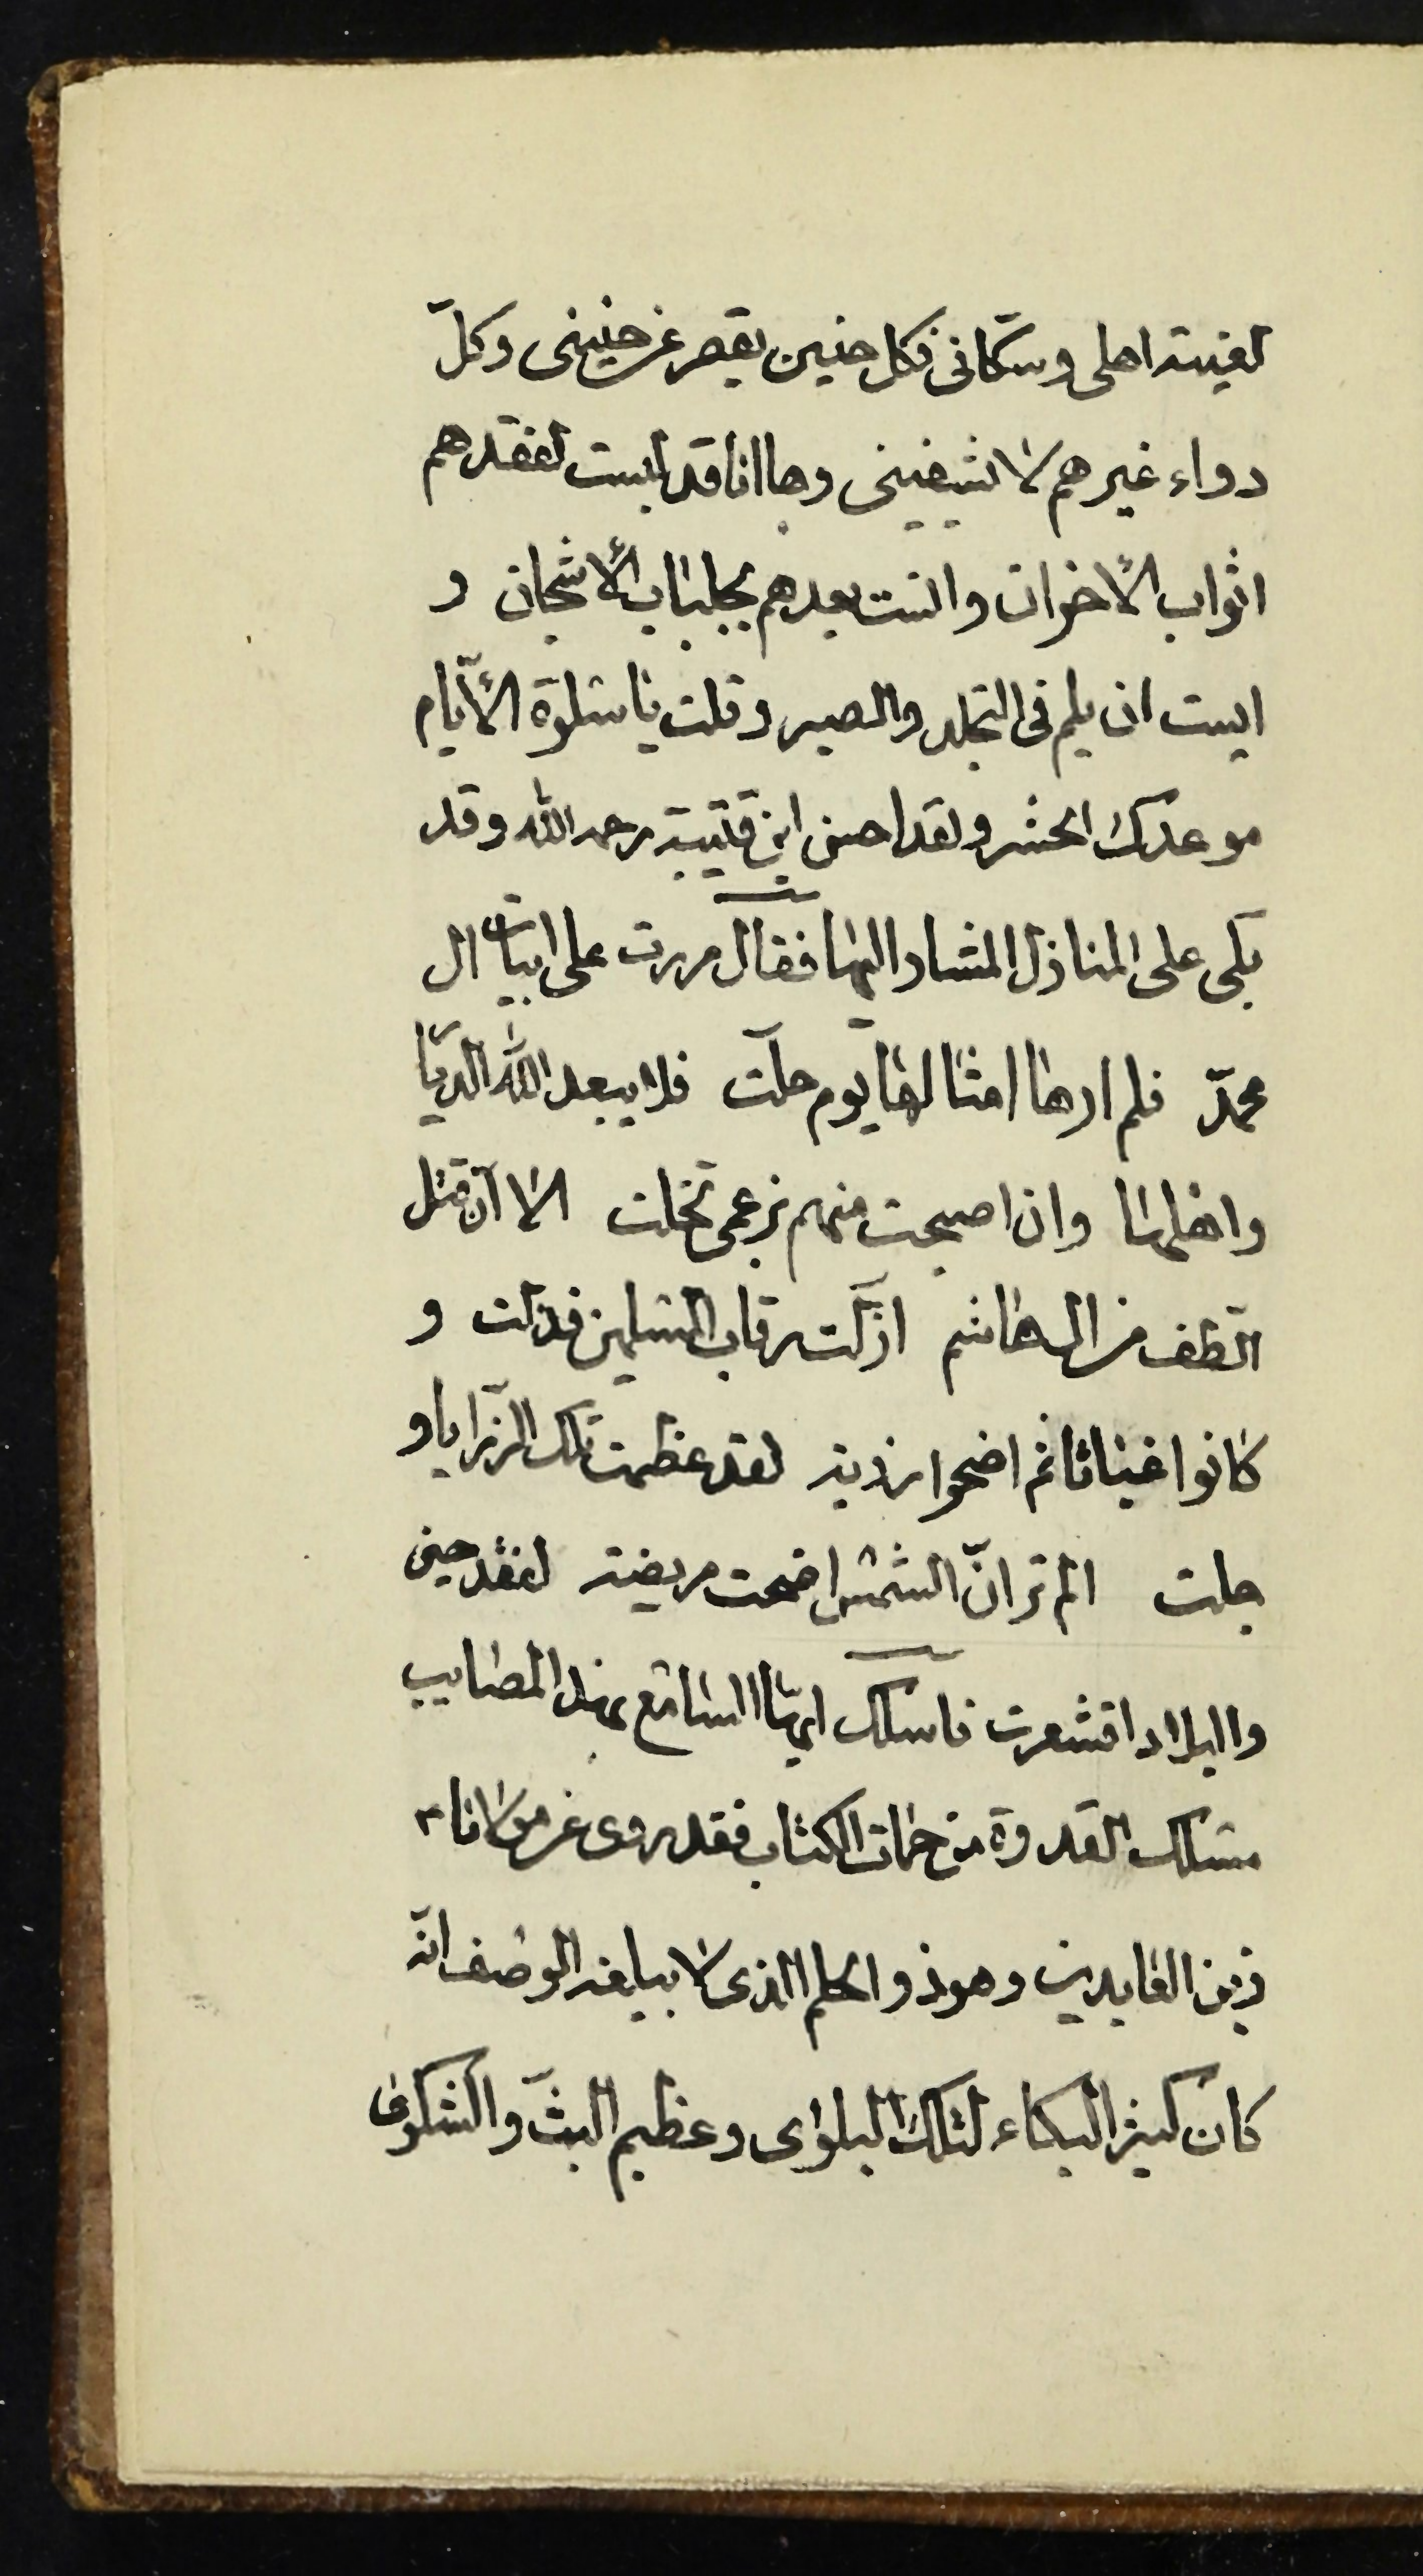 لغيبة اهلى وسكّانى فكل حنين يقصر عن حنينى وكلّ
دواء غيرهم لا يشيفينى وها انا قد لبست لفقدهم
اثواب الأخوان وانست بعدهم بجلباب الأشجان و
ايست ان يلم فى التجلد والصبر وقلت يا سلوة الأيّام
موعدك الحشر ولقد احسن ابن قتيبة رحمه الله وقد
بكى على المنازل المشار اليها فقال مررت على ابيات ال
محمدّ فلم ارها امثالها يوم حلّت فلا يبعد الله الديّا
واهلها وان اصبحت منهم بزعمى تخلت الا انّ قتل
الطّف من ال هاشم اذلّت رقاب المسلمين فذلت و
كانوا غياثا ثم اضحوا رزية لقد عظمت تلك الرّزايا و
جلت الم تر انّ الشمس اضحت مريضة لفقد حسين
والبلاد اقشعرت فاسلك ايها السامع بهذا المصايب
مسلك القدوة من حمات الكتاب فقد روى عن مولانا
زين العابدين وهو ذو الحلم الذى لا يبلغه الوصف انّه
كان كثير البكاء لتلك البلوى وعظيم البثّ والشكوى